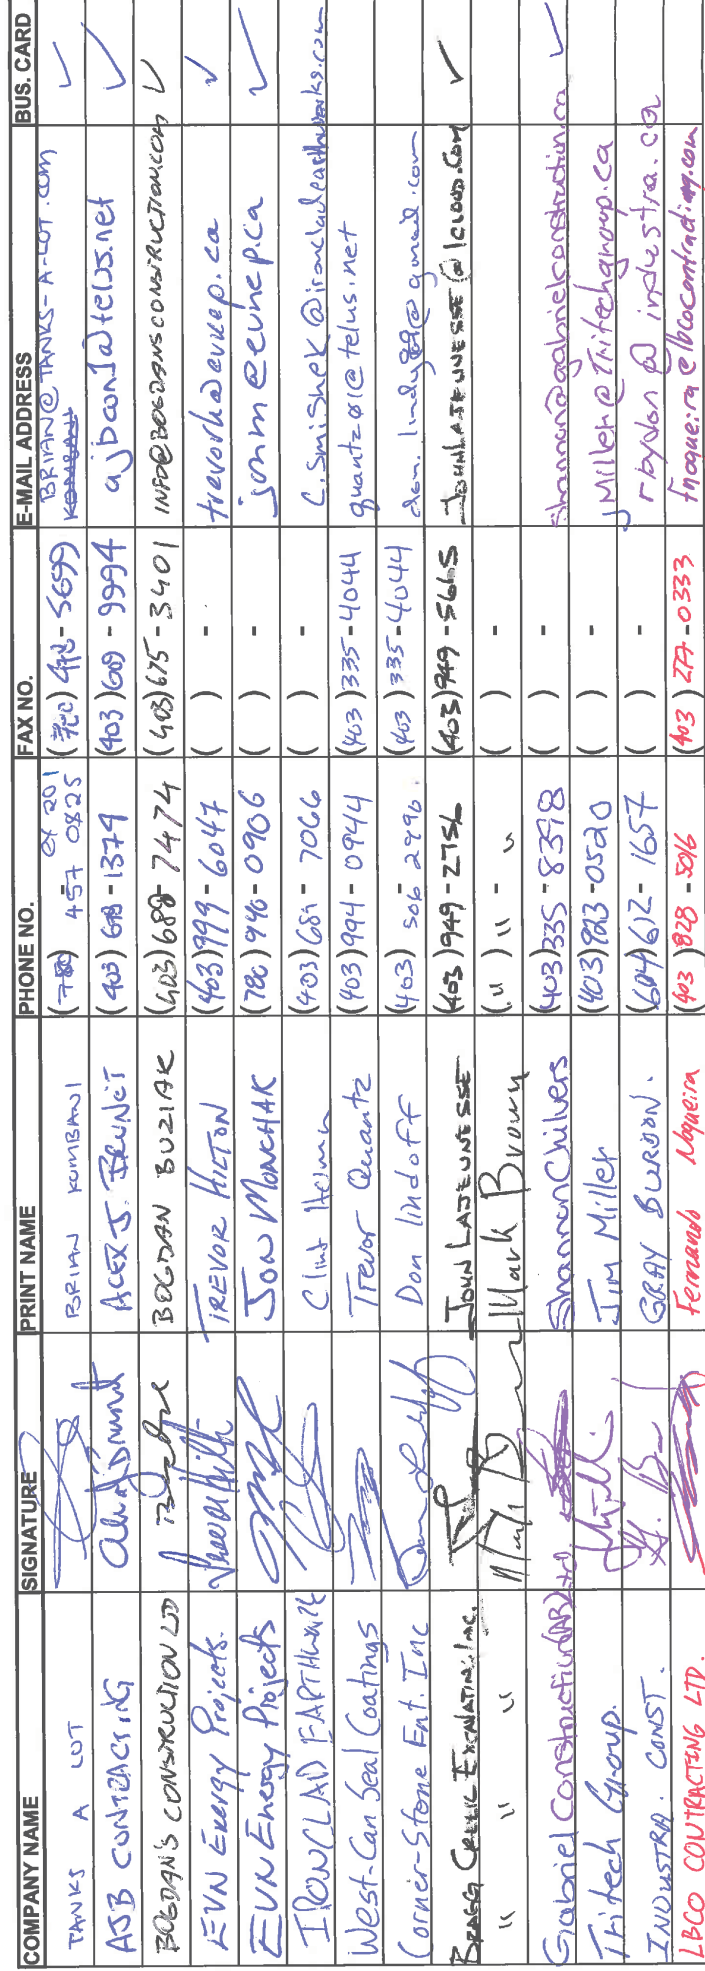 COMPANY NAME SIGNATURE PRINT NAME PHONE NO. FAX NO. E-MAIL ADDRESS BUS. CARD
TANKS A LOT BRIAN KOMBANI (780) 457 0825 ex 201 (780) 478-5699 BRIAN@TANKS-A-LOT.COM ✓
AJB CONTRACTING ALEX J. BRUNET (403) 678-1379 (403) 609-9994 ajbcon1@telus.net ✓
BOGDAN'S CONSTRUCTION LTD BOGDAN BUZIAK (403) 688-7474 (403) 675-3401 INFO@BOGDANSCONSTRUCTION.COM ✓
EVN Energy Projects. TREVOR HILTON (403) 999-6047 ( ) - trevorh@evnep.ca ✓
EVN Energy Projects JON MONCHAK (780) 940-0906 ( ) - jonm@evnep.ca ✓
IRONCLAD EARTHWORKS Clint (403) 689-7066 ( ) - C.Smishek@ironcladearthworks.com
West-Can Seal Coatings Trevor Quantz (403) 994-0944 (403) 335-4044 quantz01@telus.net
Corner-Stone Ent. Inc Don lindoff (403) 506 2990. (403) 335-4044 @gmail.com
BRAGG CREEK EXCAVATING INC. JOHN LAJEUNESSE (403) 949-2756 (403) 949-5665 JOHNLAJEUNESSE@ICLOUD.COM ✓
" " " Mark Brown (") " - " ( ) -
Gabriel Construction (AB) LTD. Shannon Chilvers (403) 335-8398 ( ) - shannon@gabrielconstruction.ca ✓
Tritech Group. Jim Miller (403) 923-0520 ( ) - jMiller@Tritechgroup.ca
INDUSTRA. CONST. GRAY BURDON. (604) 612-1657 ( ) - @industra.ca
LBCO CONTRACTING LTD. Fernando Nogueira (403) 828-5016 (403) 277-0333 fnogueira@lbcocontracting.com